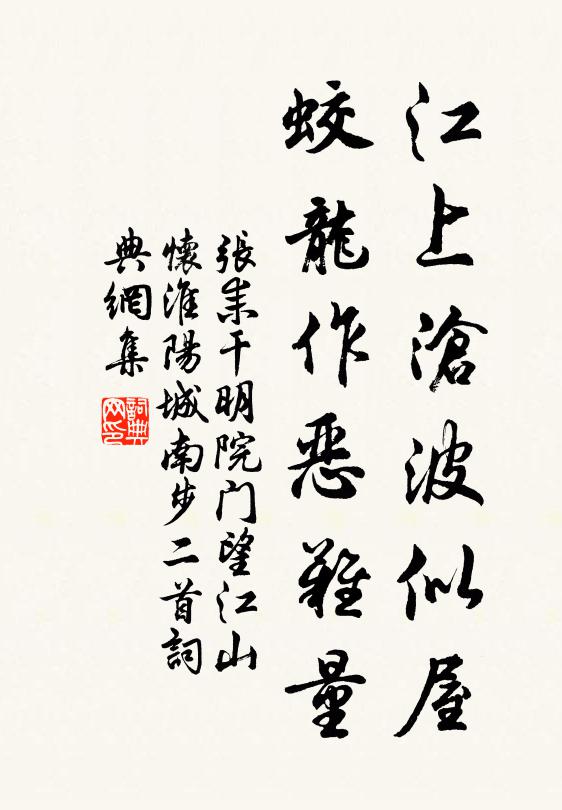 江上滄波似屋
蛟龍作惡難量
張耒干明院门望江山
懷淮陽城南步二首詞
典網集
詞典
网印